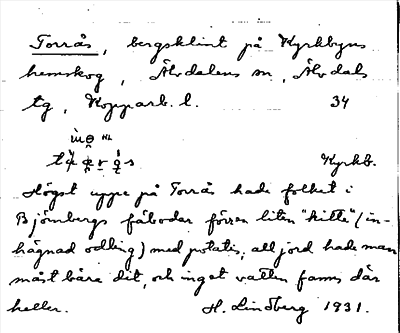 Torrås, bergsklint på Kyrkbyns
hemskog, Älvdalens sn, Älvdals
tg, Kopparb. l. 34
Kyrkb.
Högst uppe på Torrås hade folket i
Björnbergs fäbodar förren liten "kitte" (in-
hägnad odling) med potatis, all jord hade man
måst bära dit, och inget vatten fanns där
heller. H. Lindberg 1931.